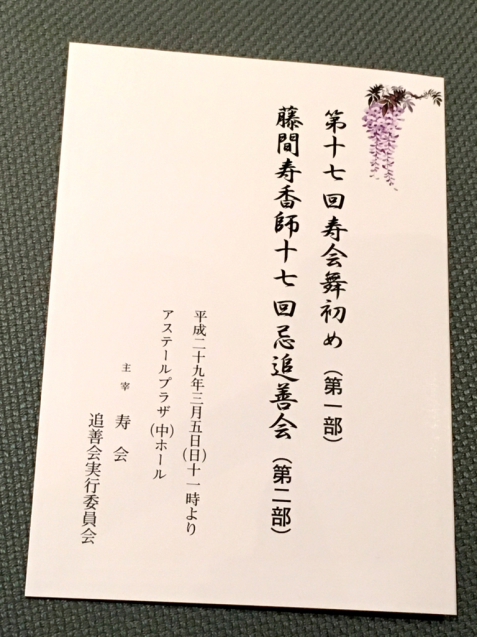 第十七回寿会舞初め（第一部）
藤間寿香師十七回忌追善会（第二部）
平成二十九年三月五日(日)十一時より
アステールプラザ(中)ホール
主宰 寿会
追善会実行委員会